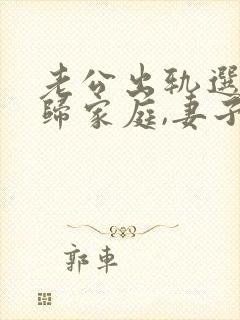 老公出轨選
歸家庭,妻子
郭車